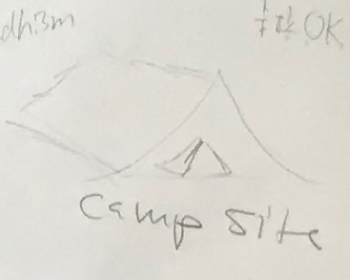 dh3m
OK
Camp Site